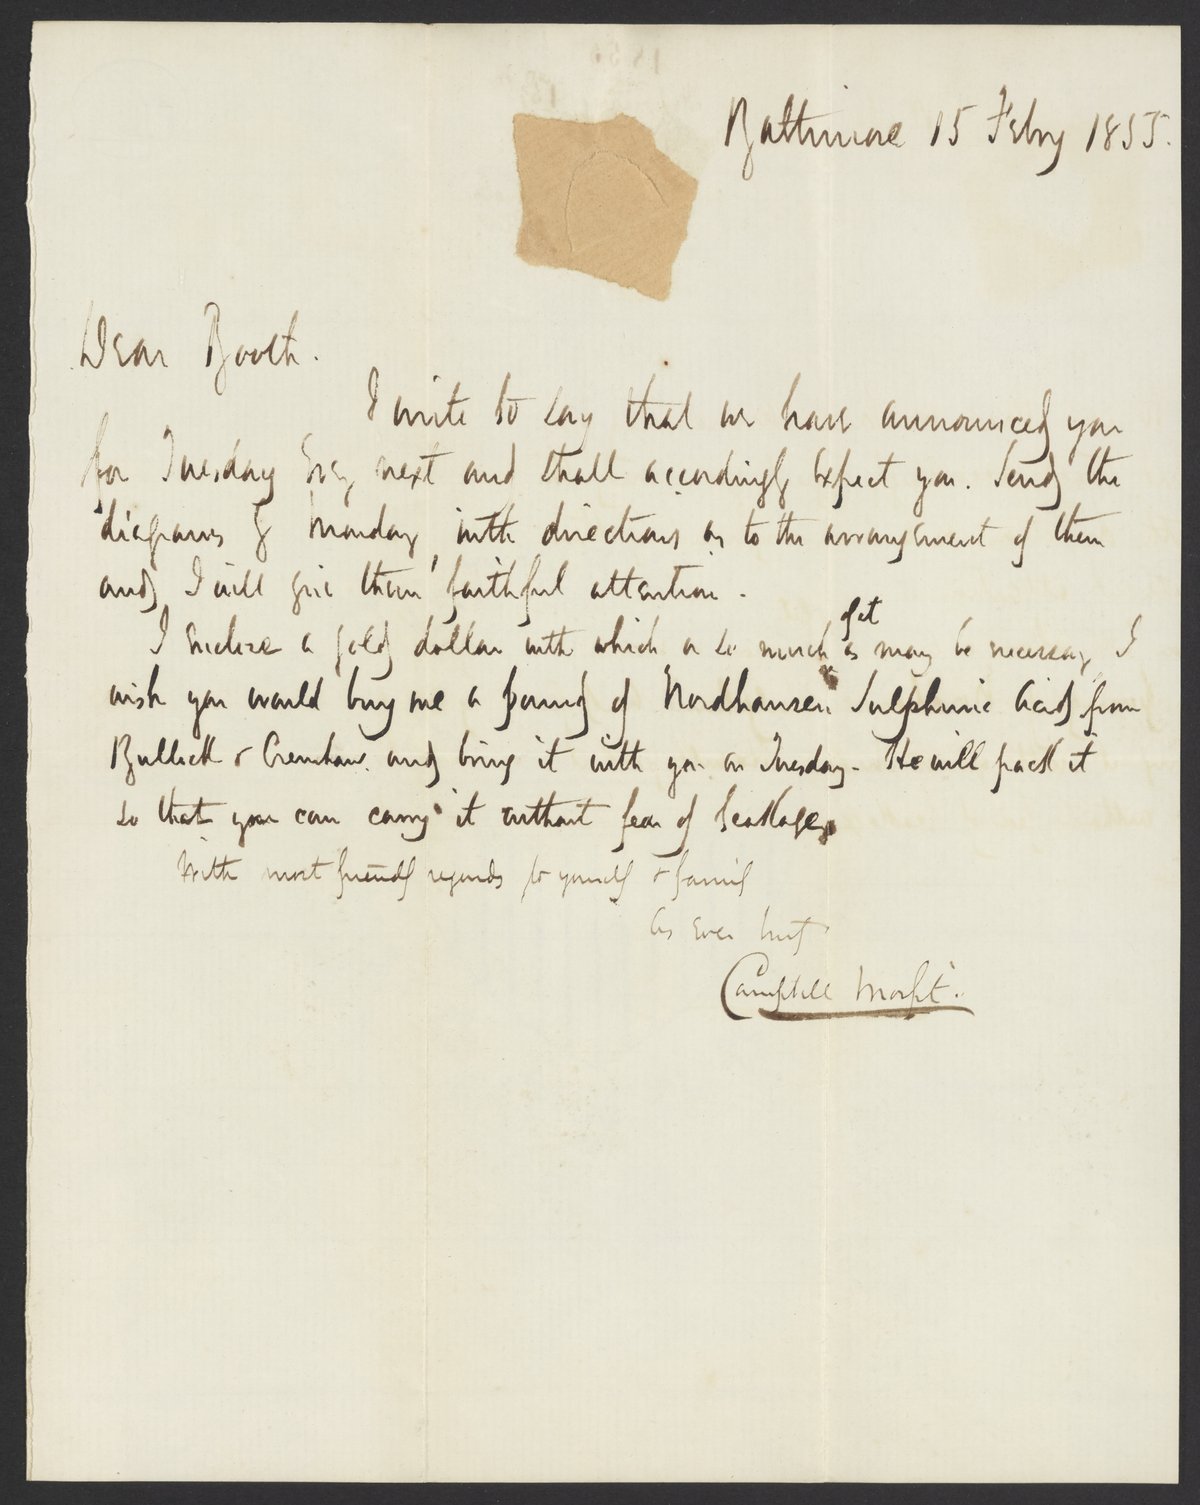 Baltimore 15 Feby 1855.
Dear Booth.
I write to say that we have announced you
for Tuesday Evg next and shall accordingly expect you. Send the
diagrams by Monday with directions as to the arrangement of them
and I will give them faithful attention.
I enclose a gold dollar with which or so much of it as may be necessary I
wish you would buy me a pound of Nordhausen Sulphuric Acid from
Bullock & Crenshaw. and bring it with you on Tuesday. He will pack it
so that you can carry it without fear of leakage.
With most friendly regards to yourself & family
As ever truly
Campbell Morfit.